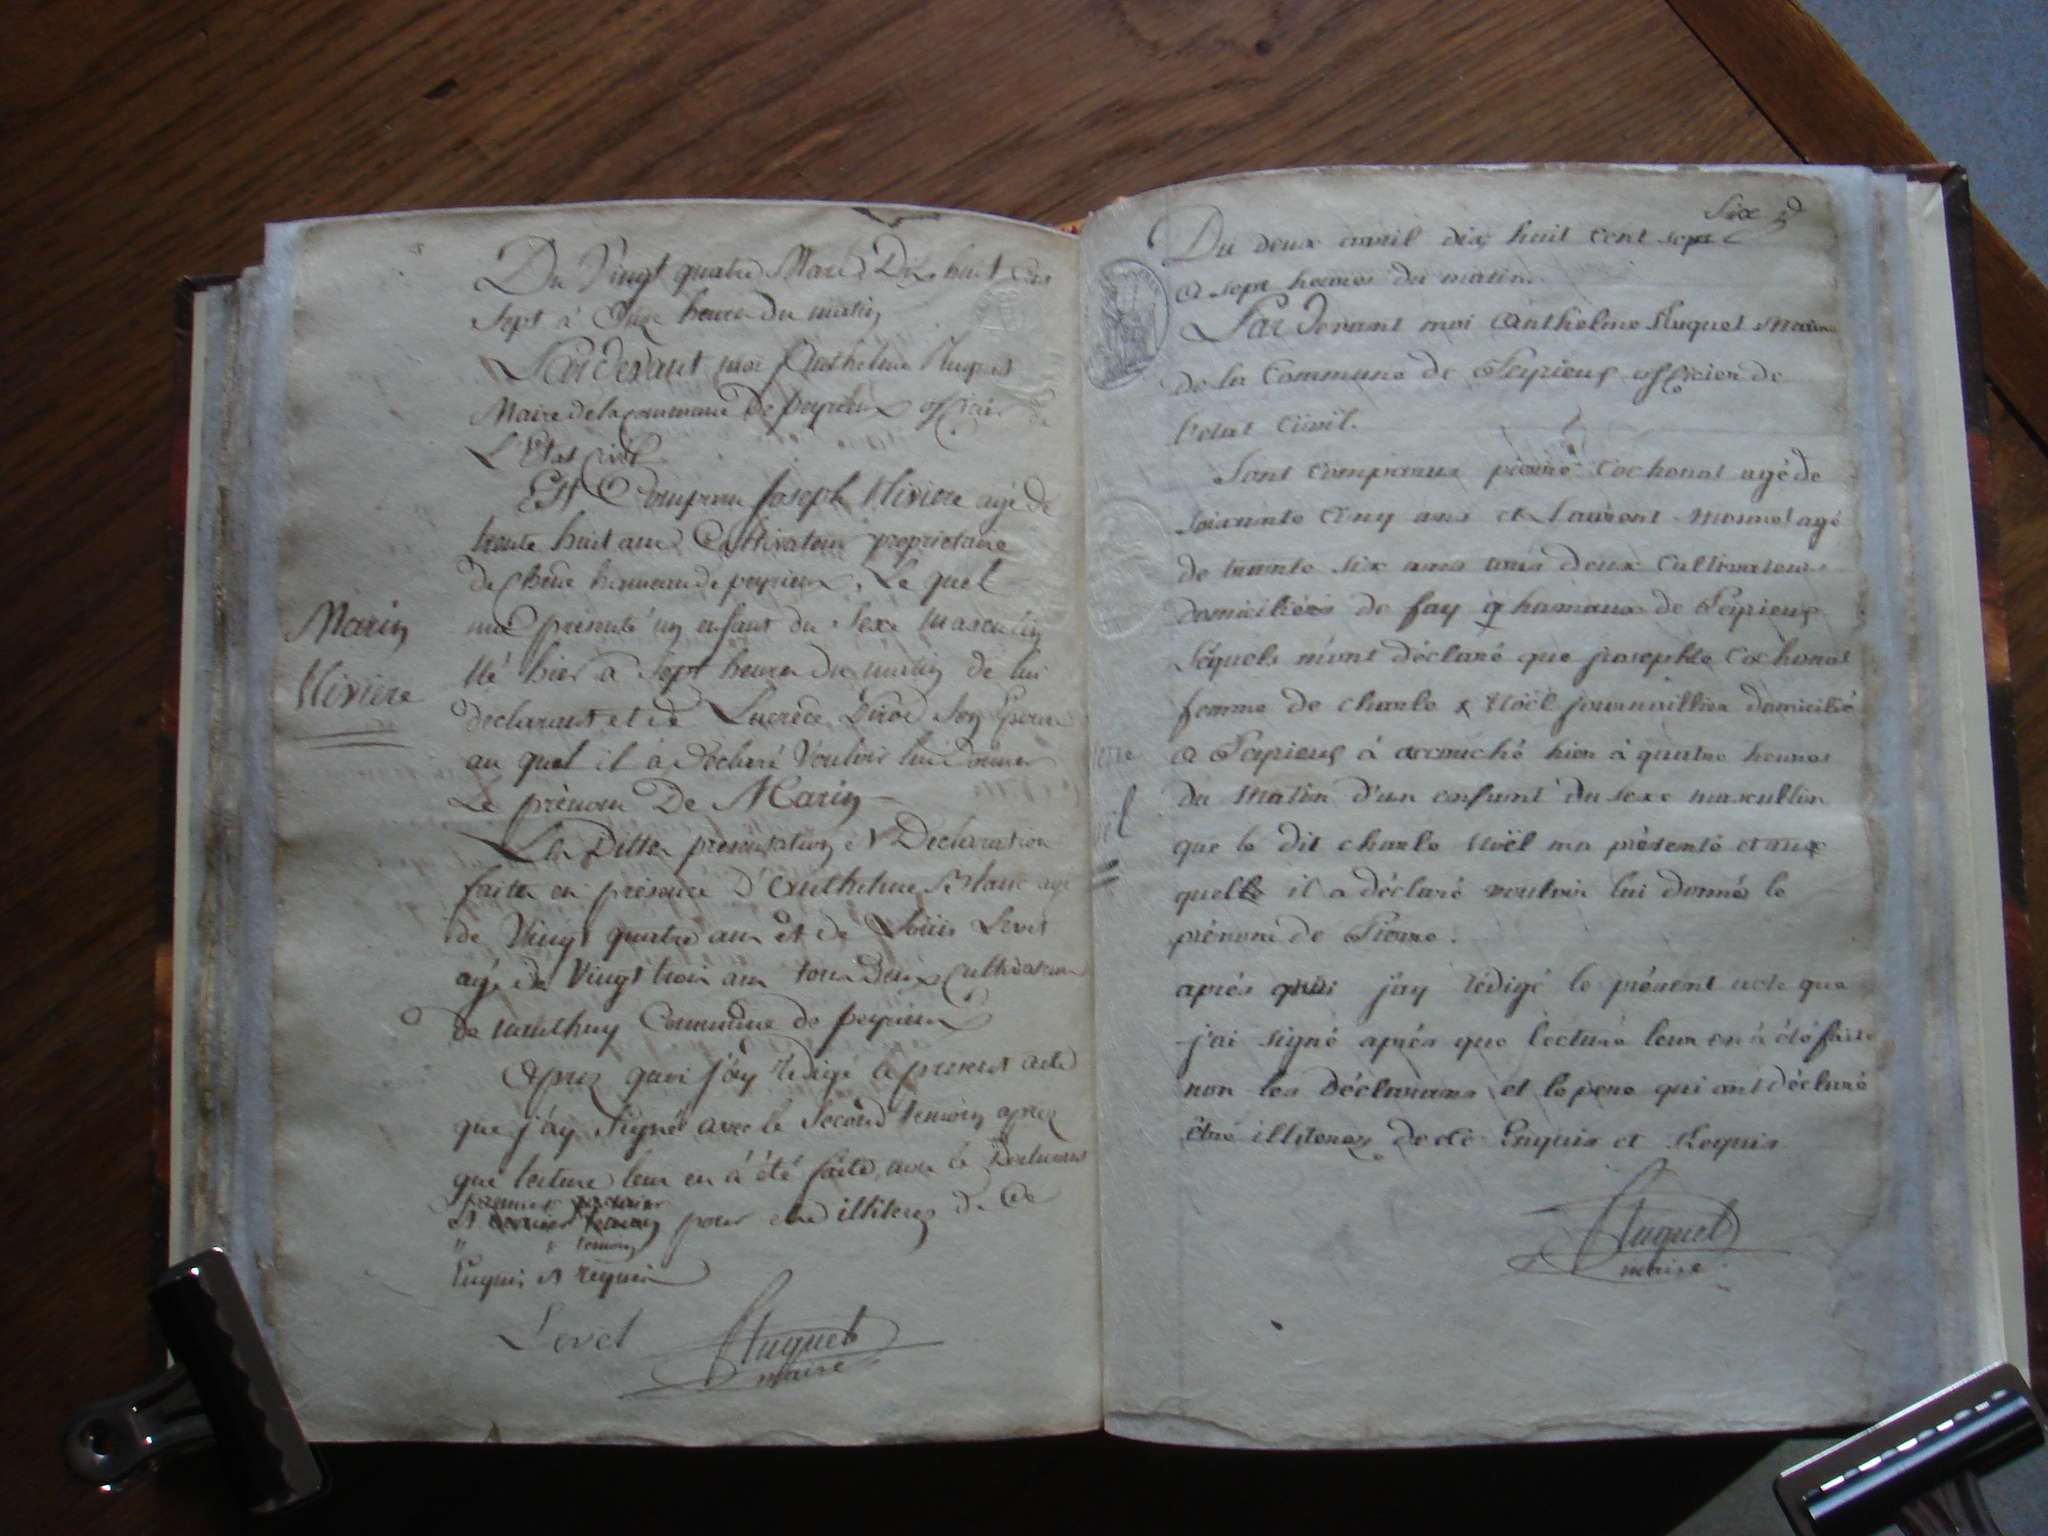 Du Vingt quatre Mars Dix huit Cens
Sept à Onze heures du matin
Pardevant moi Anthelme Huguet
Maire de la commune De peyrieux officier de
L'Etat civil
Est Comparu Joseph Riviere agé de
trente huit ans Cultivateur propriétaire
de hameau de peyrieux, Le quel
ma présenté un enfant du Sexe Masculin
Né hier a Sept heures du matin de lui
declarant et de Lucrèce Son Epouse
au quel il à déclaré Vouloir lui donner
Le prénom De Marin
Marin
Riviere
La Ditte présentation et Declaration
faite en présence d'anthelme agé
de Vingt quatre ans et de Loüis Levet
agé de Vingt trois ans tous Deux Cultivateurs
de Commune de peyrieux
Aprez quoi j'ay rédigé le present acte
que j'ay Signé avec le Second temoin aprez
que lecture leur en à été faite, non le Declarant
premier
et pour etre illiterez de Ce
temoin
Enquis et requis
Levet Huguet
maire
Six
Du deux avril dix huit cent sept
a sept heures du matin.
Par Devant moi Anthelme Huguet Maire
de la Commune de Peyrieux officier de
l'etat Civil.
Sont Comparus pierre Cochonat agé de
soixante Cinq ans et Laurent Monnet agé
de trante six ans tous deux Cultivateurs
domiciliés de fay hamaux de Peyrieux
Léquels m'ont déclaré que josephte Cochonat
femme de charle Noël journaillier domicilié
a Peyrieux à accouché hier à quatre heures
du Matin d'un enfant du sexe masculin
que le dit charle Noël ma présenté et au
quel il a déclaré vouloir lui donné le
prénom de Pierre.
aprés quoi j'ay rédigé le présent acte que
j'ai signé aprés que lecture leur en à été faite
non les Déclarans et le pere qui ont déclaré
être illiterez de ce Enquis et Requis
Huguet
maire